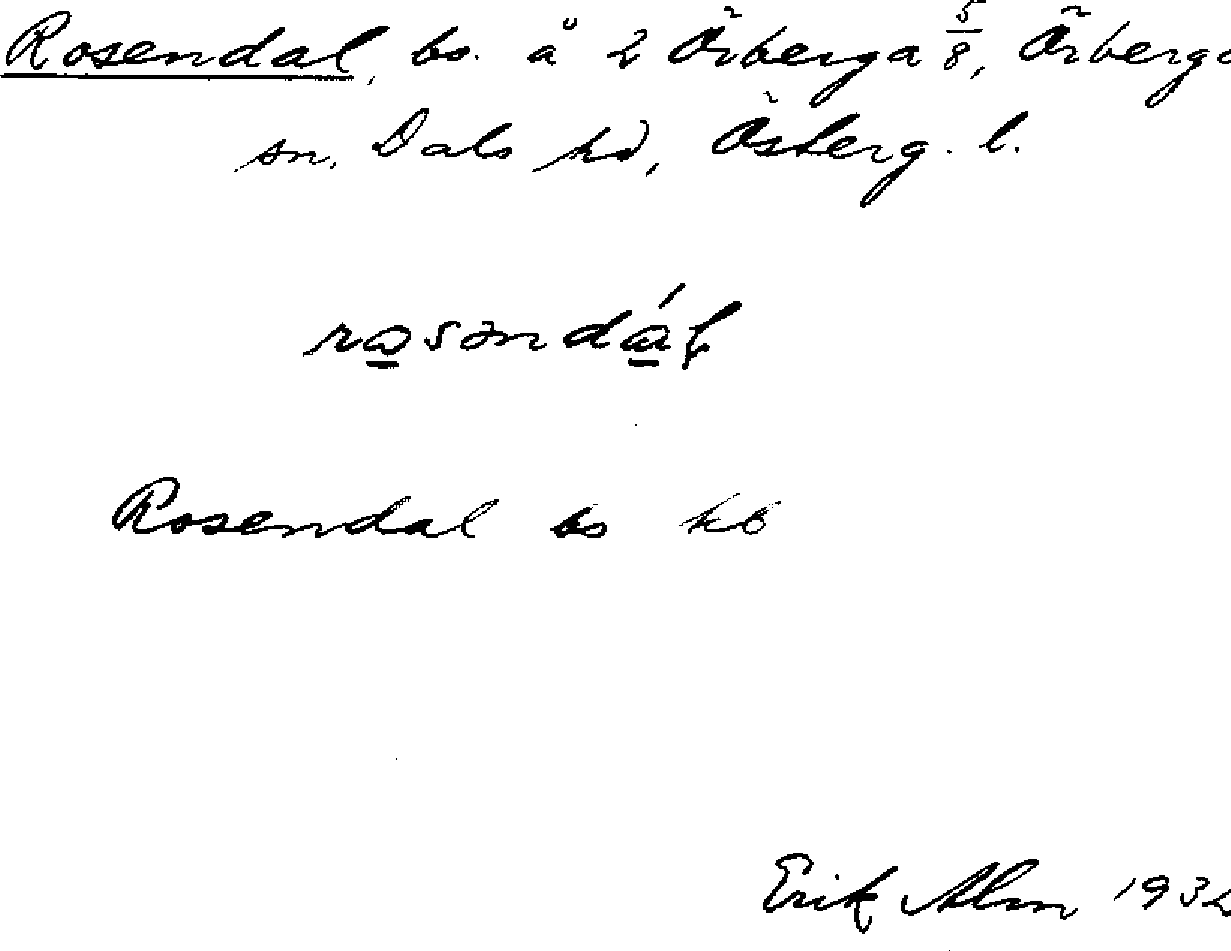 Rosendal, bs. å 2 Örberga 5/8, Örberga
sn, Dals hd, Österg. l.
rosəndál
Rosendal bs kb
Erik Alm 1932